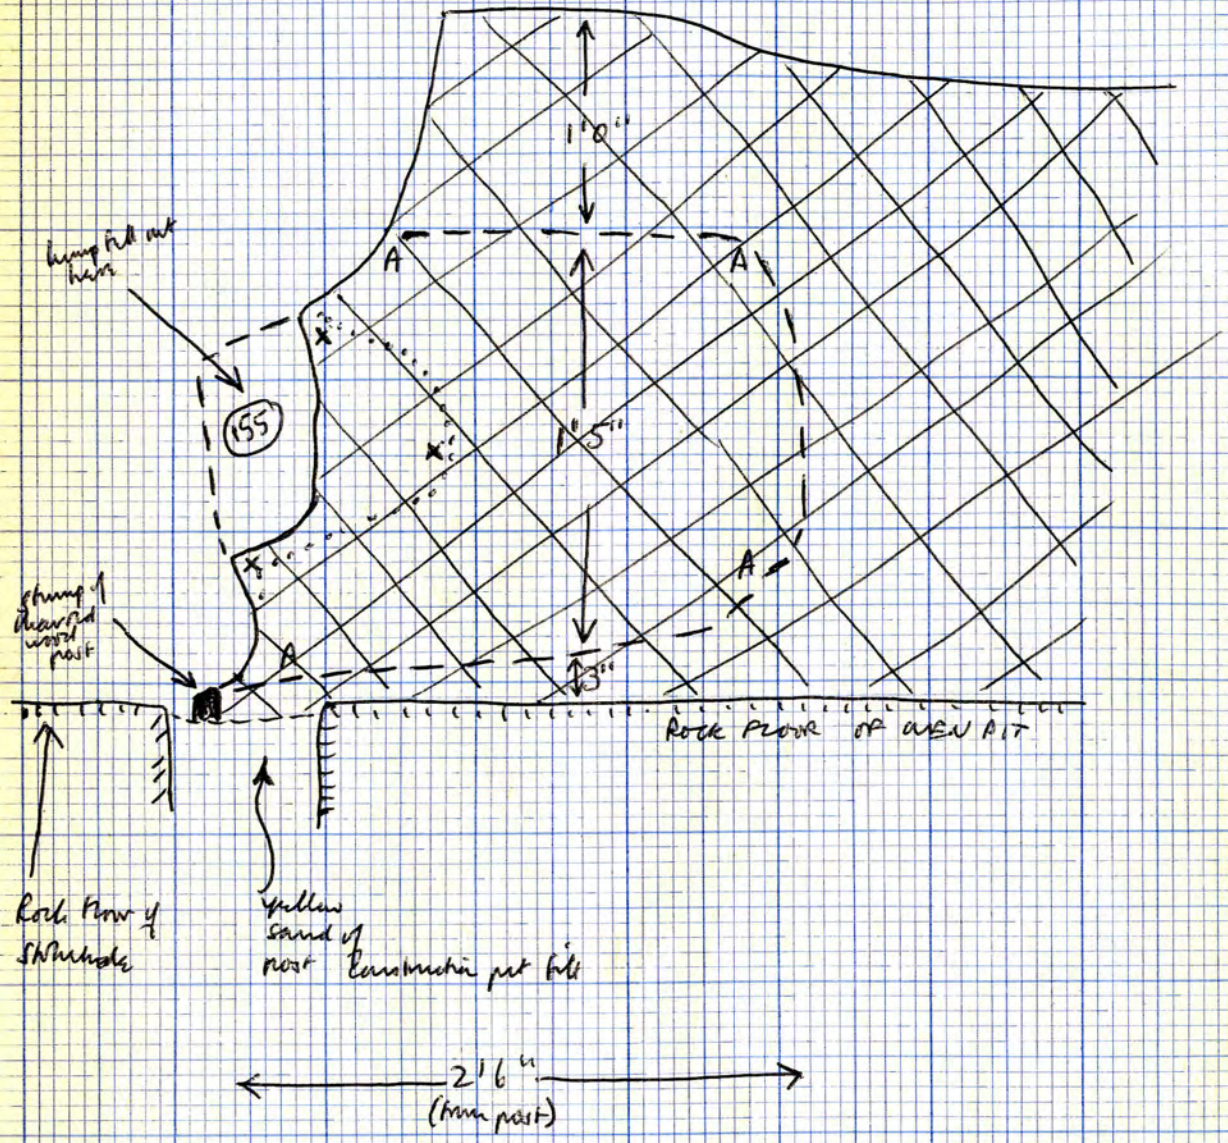 1'0"
lump fell out
here
A
A
155
1'5"
stump of
charred
wood
post
A
A
3"
ROCK FLOOR OF OVEN PIT
Rock floor of
stokehole
yellow
sand of
post construction pit fill
2'6"
(from post)